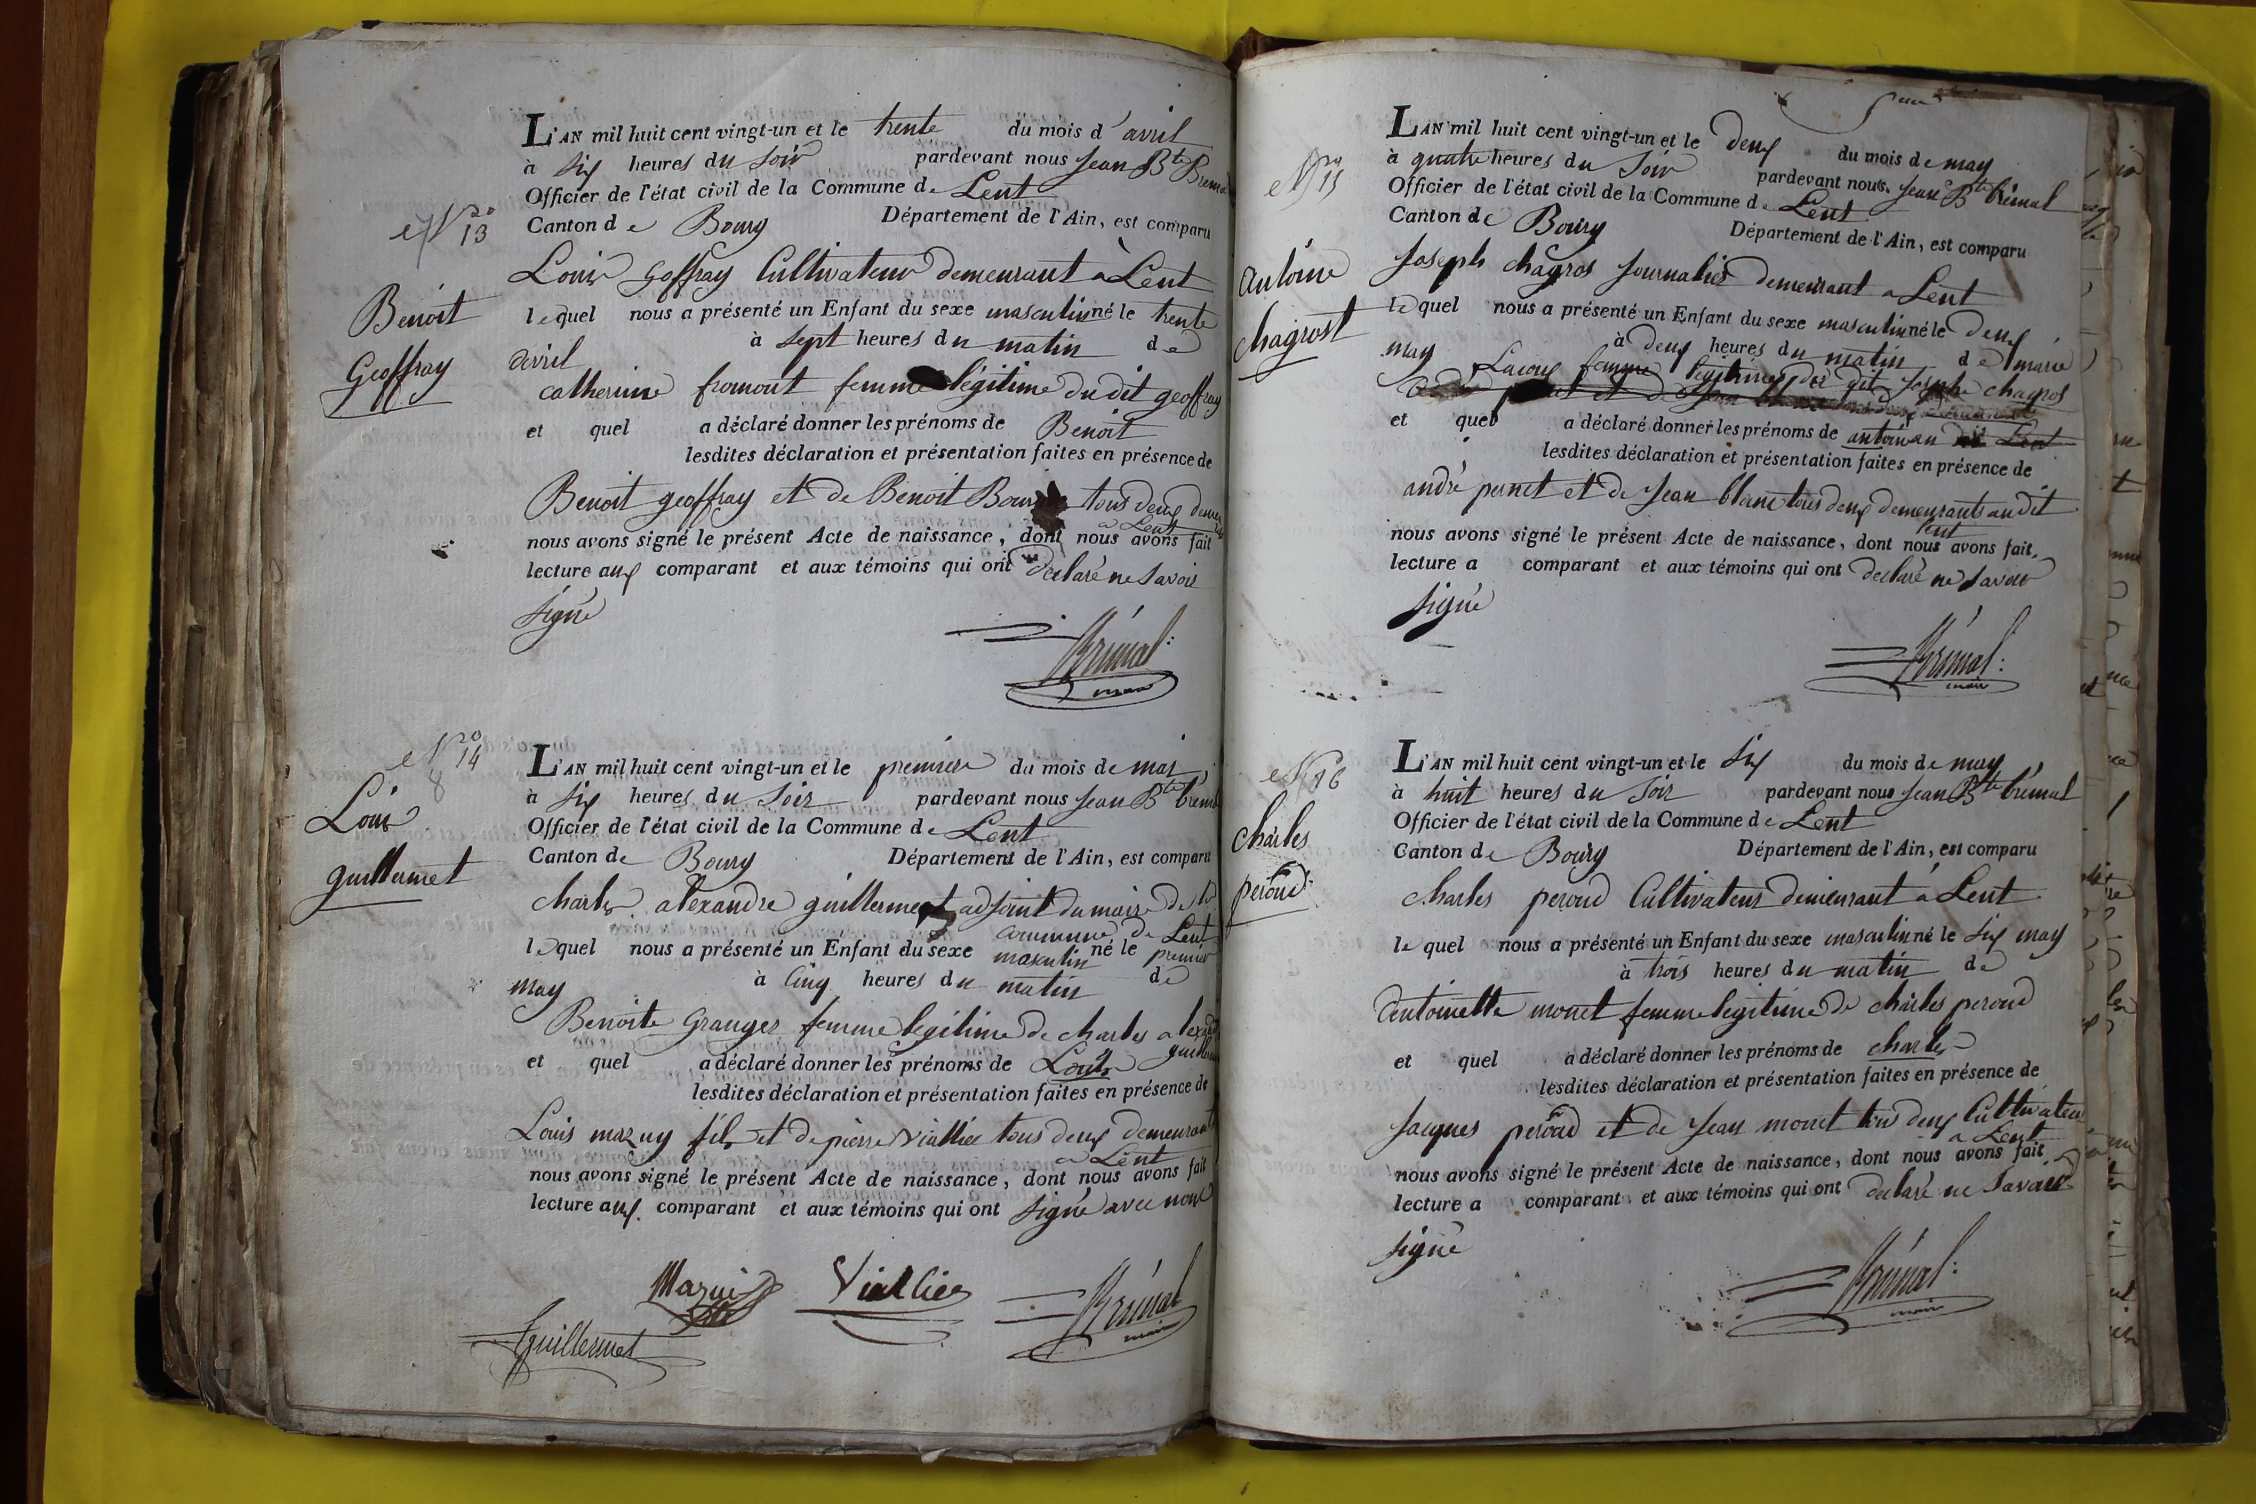 N.° 13
Benoit
Geoffray
L'AN mil huit cent vingt-un et le trente du mois d'avril
à six heures du soir pardevant nous Jean Bte
Officier de l'état civil de la Commune de Lent
Canton de Bourg Département de l'Ain, est comparu
Louis Goffray Cultivateur demeurant à Lent
lequel nous a présenté un Enfant du sexe masculin né le trente
davril à sept heures du matin de
catherine fromont femme légitime du dit geoffray
et quel a déclaré donner les prénoms de Benoit
lesdites déclaration et présentation faites en présence de
Benoit geoffray et de Benoit tous deux
a Lent
nous avons signé le présent Acte de naissance, dont nous avons fait
lecture aux comparant et aux témoins qui ont declaré ne savoir
signé
Brémal
maire
N.° 14
8
Loui
guillermet
L'AN mil huit cent vingt-un et le premier du mois de mai
à six heures du soir pardevant nous Jean Bte
Officier de l'état civil de la Commune de Lent
Canton de Bourg Département de l'Ain, est comparu
charles alexandre guillermet adjoint du maire de la
commune de Lent
lequel nous a présenté un Enfant du sexe masculin né le premier
may à cinq heures du matin de
Benoite Granger femme legitime de charles
et quel a déclaré donner les prénoms de Louis
lesdites déclaration et présentation faites en présence de
Louis mazuy fils et de pierre viallier tous deux demeurant
a Lent
nous avons signé le présent Acte de naissance, dont nous avons fait
lecture aux comparant et aux témoins qui ont signé avec nous
Mazui Viallier Brémal
maire
Guillermet
N.° 15
antoine
chagrost
L'AN mil huit cent vingt-un et le deux du mois de may
à quatre heures du soir pardevant nous Jean Bte brémal
Officier de l'état civil de la Commune de Lent
Canton de Bourg Département de l'Ain, est comparu
Joseph chagros journalier demeurant a Lent
lequel nous a présenté un Enfant du sexe masculin né le deux
may à deux heures du matin de marie
femme legitime du dit Joseph chagros
et quel a déclaré donner les prénoms de antoine
lesdites déclaration et présentation faites en présence de
andré pernet et de Jean blanc tous deux demeurants au dit
Lent
nous avons signé le présent Acte de naissance, dont nous avons fait
lecture a comparant et aux témoins qui ont declaré ne savoir
signé
Brémal
maire
N.° 16
charles
peroud
L'AN mil huit cent vingt-un et le six du mois de may
à huit heures du soir pardevant nous Jean Bte brémal
Officier de l'état civil de la Commune de Lent
Canton de Bourg Département de l'Ain, est comparu
charles peroud Cultivateur demeurant a Lent
lequel nous a présenté un Enfant du sexe masculin né le six may
à trois heures du matin de
antoinette monet femme legitime de charles peroud
et quel a déclaré donner les prénoms de charles
lesdites déclaration et présentation faites en présence de
Jacques peroud et de Jean monet tous deux Cultivateur
a Lent
nous avons signé le présent Acte de naissance, dont nous avons fait
lecture a comparant et aux témoins qui ont declaré ne savoir
signé
Brémal
maire